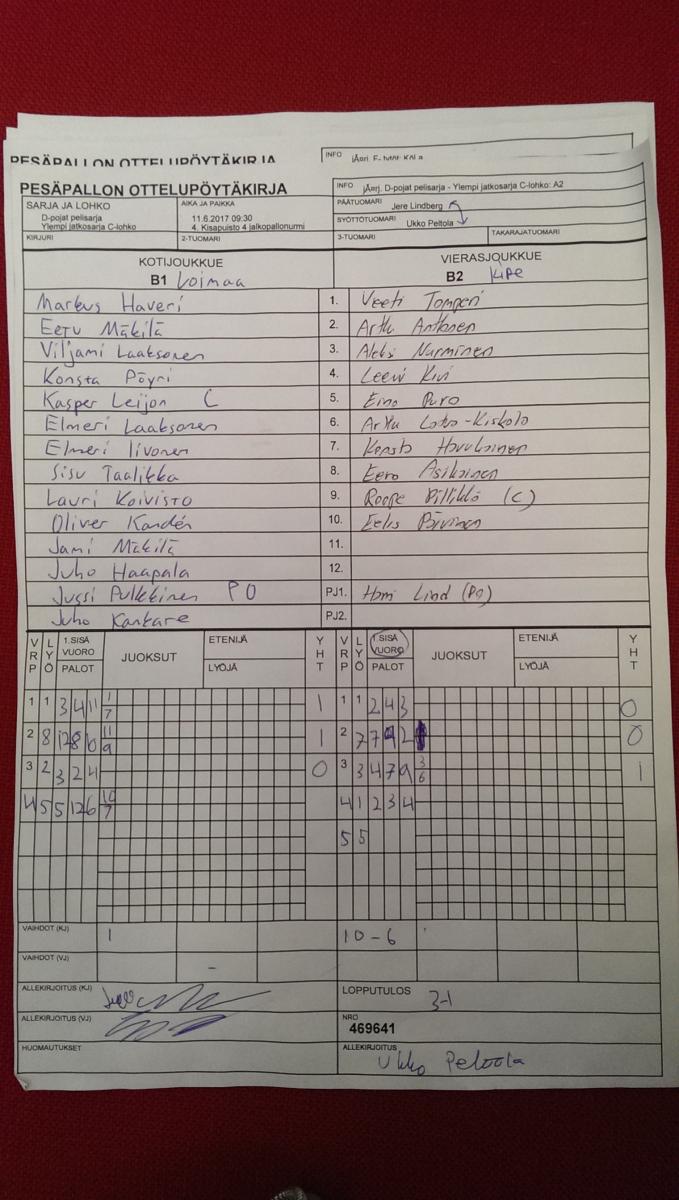 PESÄPALLON OTTELUPÖYTÄKIRJA
INFO
PESÄPALLON OTTELUPÖYTÄKIRJA
INFO jÄerj. D-pojat pelisarja - Ylempi jatkosarja C-lohko: A2
SARJA JA LOHKO
D-pojat pelisarja
Ylempi jatkosarja C-lohko
AIKA JA PAIKKA
11.6.2017 09:30
4. Kisapuisto 4 jalkopallonurmi
PÄÄTUOMARI Jere Lindberg
SYÖTTÖTUOMARI Ukko Peltola
KIRJURI
2-TUOMARI
3-TUOMARI
TAKARAJATUOMARI
KOTIJOUKKUE
B1 Voimaa
VIERASJOUKKUE
B2 Kipe
Markus Haveri 1. Veeti Tomperi
Eetu Mäkilä 2. Arttu Anttonen
Viljami Laaksonen 3. Aleksi Nurminen
Konsta Pöyri 4. Leevi Kivi
Kasper Leijon C 5. Eino Puro
Elmeri Laaksonen 6. Arttu
Elmeri Iivonen 7. Konsta
Sisu Taalikka 8. Eero Asikainen
Lauri Koivisto 9. Roope (C)
Oliver Kandén 10. Eelis
Jami Mäkilä 11.
Juho Haapala 12.
Jussi Pulkkinen PO PJ1. Lind (PO)
Juho Kankare PJ2.
VRP LYÖ 1.SISÄ VUORO PALOT JUOKSUT ETENIJÄ LYÖJÄ YHT VRP LYÖ 1.SISÄ VUORO PALOT JUOKSUT ETENIJÄ LYÖJÄ YHT
1 1 3 4 11 1/7 1 1 1 2 4 3 0
2 8 12 8 10 11/9 1 2 7 7 9 2 0
3 2 3 2 4 0 3 3 4 7 9 3/6 1
4 5 5 12 6 10/7 4 1 2 3 4
5 5
VAIHDOT (KJ) 1 10-6
VAIHDOT (VJ) -
ALLEKIRJOITUS (KJ)
LOPPUTULOS 3-1
ALLEKIRJOITUS (VJ)
NRO
469641
HUOMAUTUKSET
ALLEKIRJOITUS
Ukko Peltola